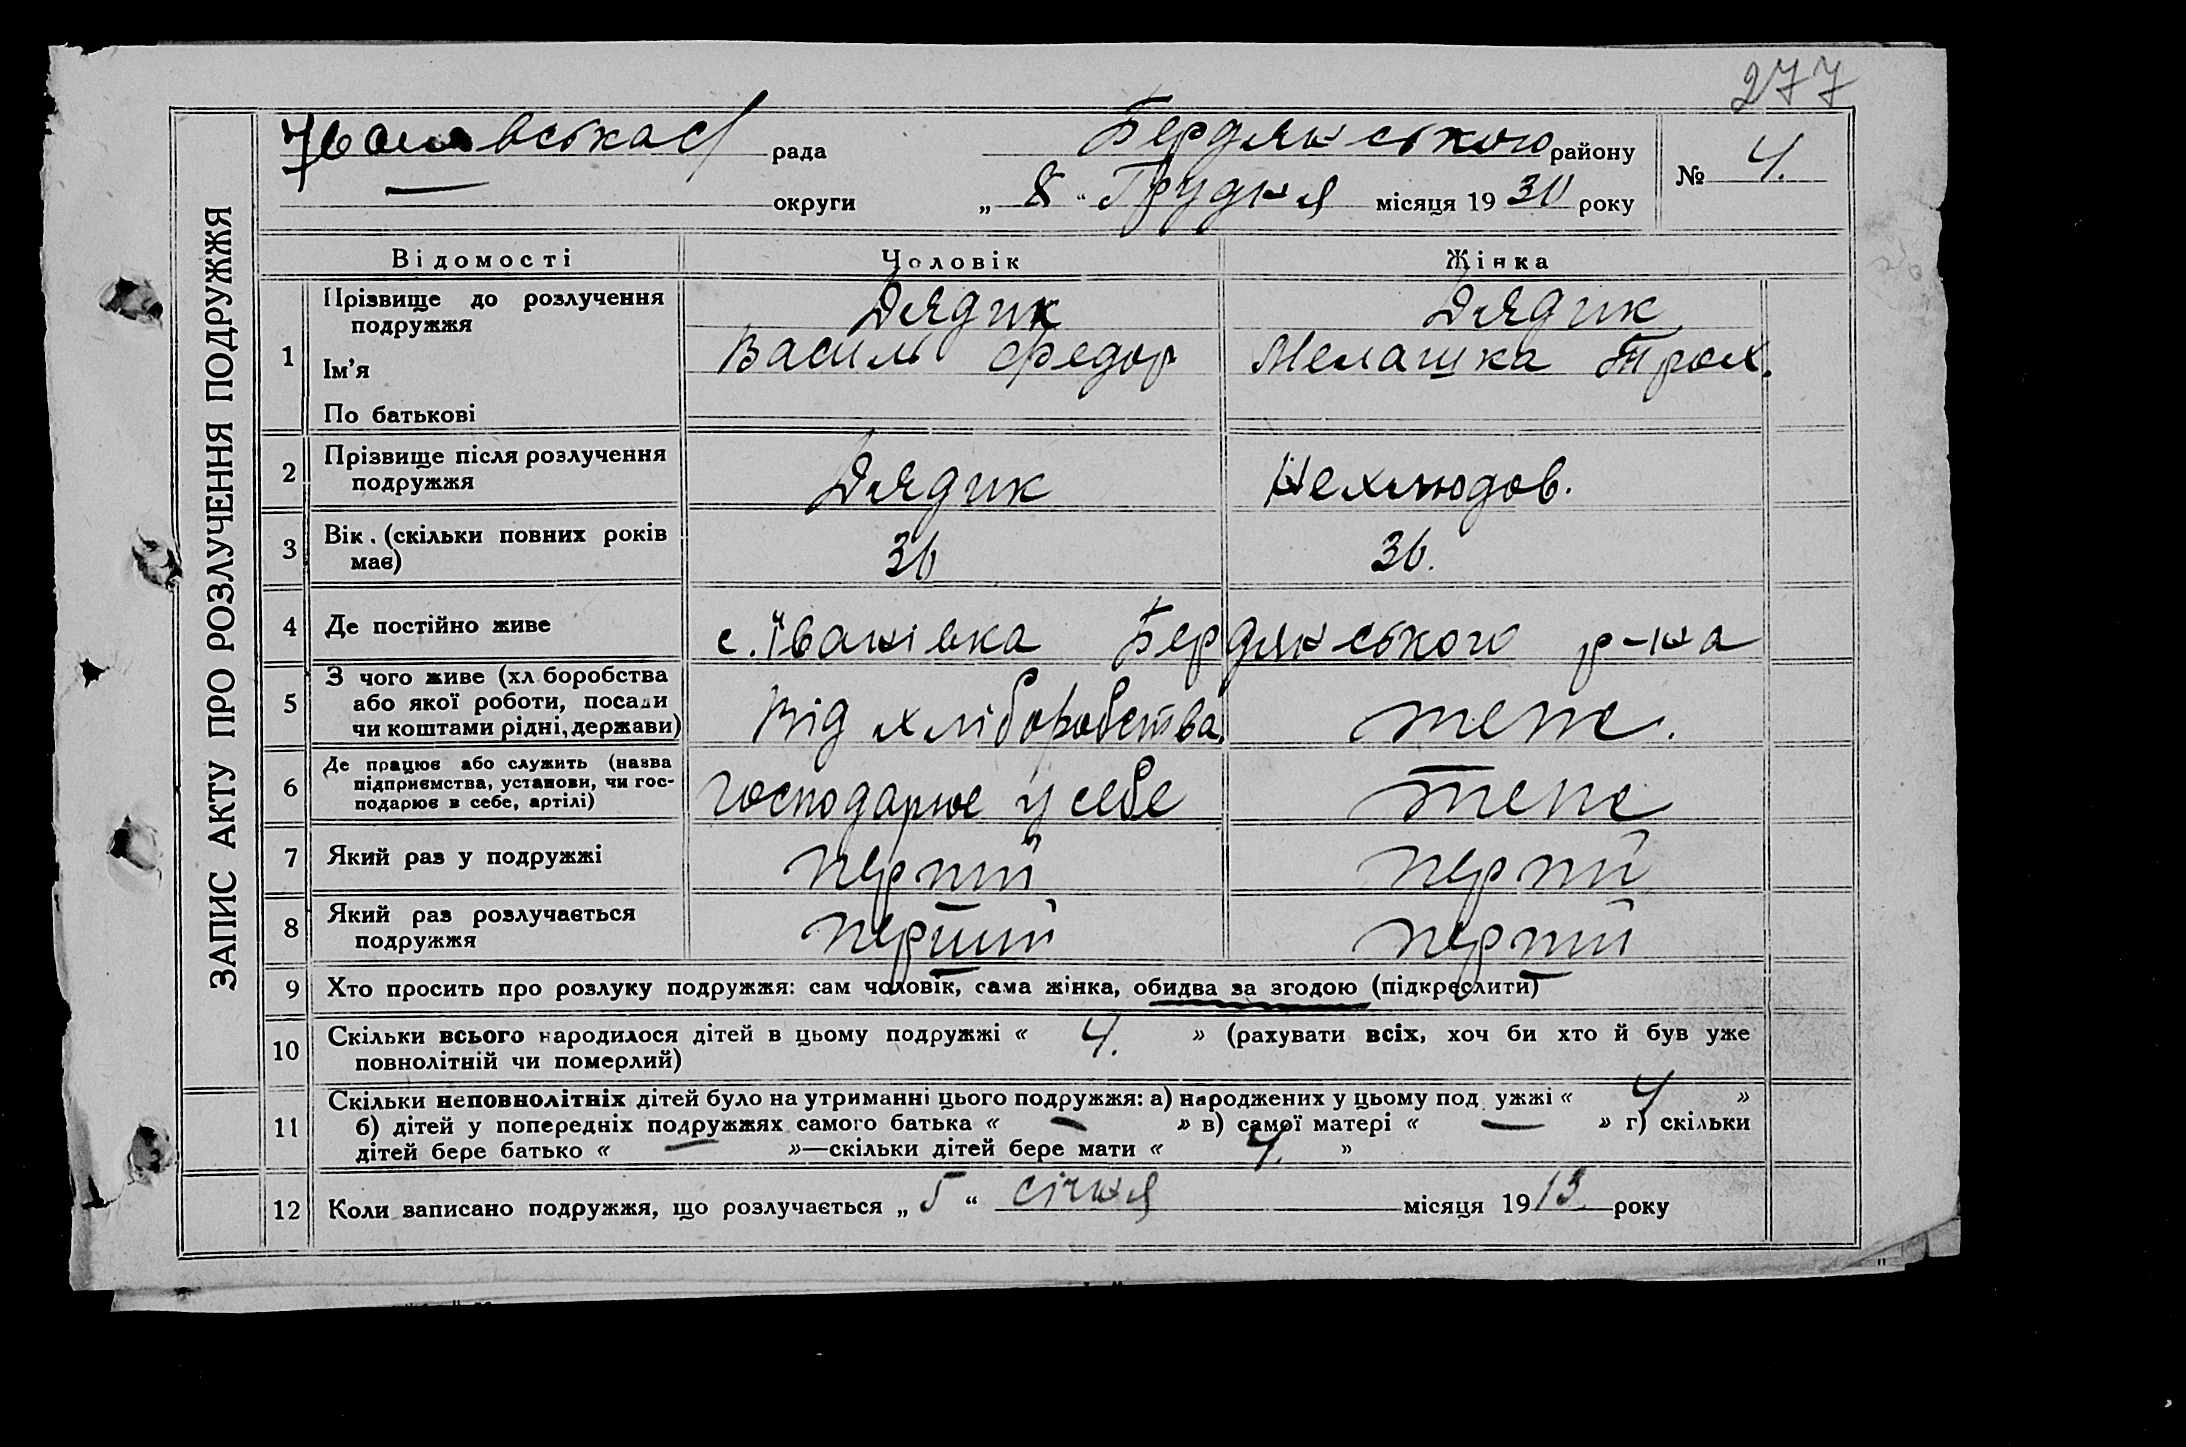 277
Івановська с/рада Бердянського району № 4.
— округи „ 8 “ Грудня місяця 1930 року
ЗАПИС АКТУ ПРО РОЗЛУЧЕННЯ ПОДРУЖЖЯ
Відомості Чоловік Жінка
1 Прізвище до розлучення Дядик Дядик
подружжя
Ім’я Василь Федор Мелашка Трох.
По батькові
2 Прізвище після розлучення Дядик Нехлюдов.
подружжя
3 Вік. (скільки повних років 36 36.
має)
4 Де постійно живе с. Іванівка Бердянського р-на
5 З чого живе (хл боробства
або якої роботи, посади Від хліборобства. теж.
чи коштами рідні, держави)
6 Де працює або служить (назва
підприємства, установи, чи гос- господарює у себе теж
подарює в себе, артілі)
7 Який раз у подружжі перший перший
8 Який раз розлучається перший перший
подружжя
9 Хто просить про розлуку подружжя: сам чоловік, сама жінка, обидва за згодою (підкреслити)
10 Скільки всього народилося дітей в цьому подружжі « 4. » (рахувати всіх, хоч би хто й був уже
повнолітній чи померлий)
11 Скільки неповнолітніх дітей було на утриманні цього подружжя: а) народжених у цьому под ужжі « 4 »
б) дітей у попередніх подружжях самого батька « — » в) самої матері « — » г) скільки
дітей бере батько « — »—скільки дітей бере мати « 4. »
12 Коли записано подружжя, що розлучається „ 5 “ січня місяця 1913 року